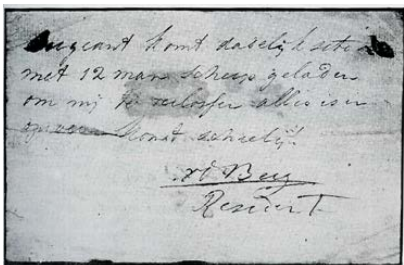 Sergeant komt dadelijk
met 12 man scherp geladen
om mij te alles is er
komt dadelijk!
vd Berg
Resident